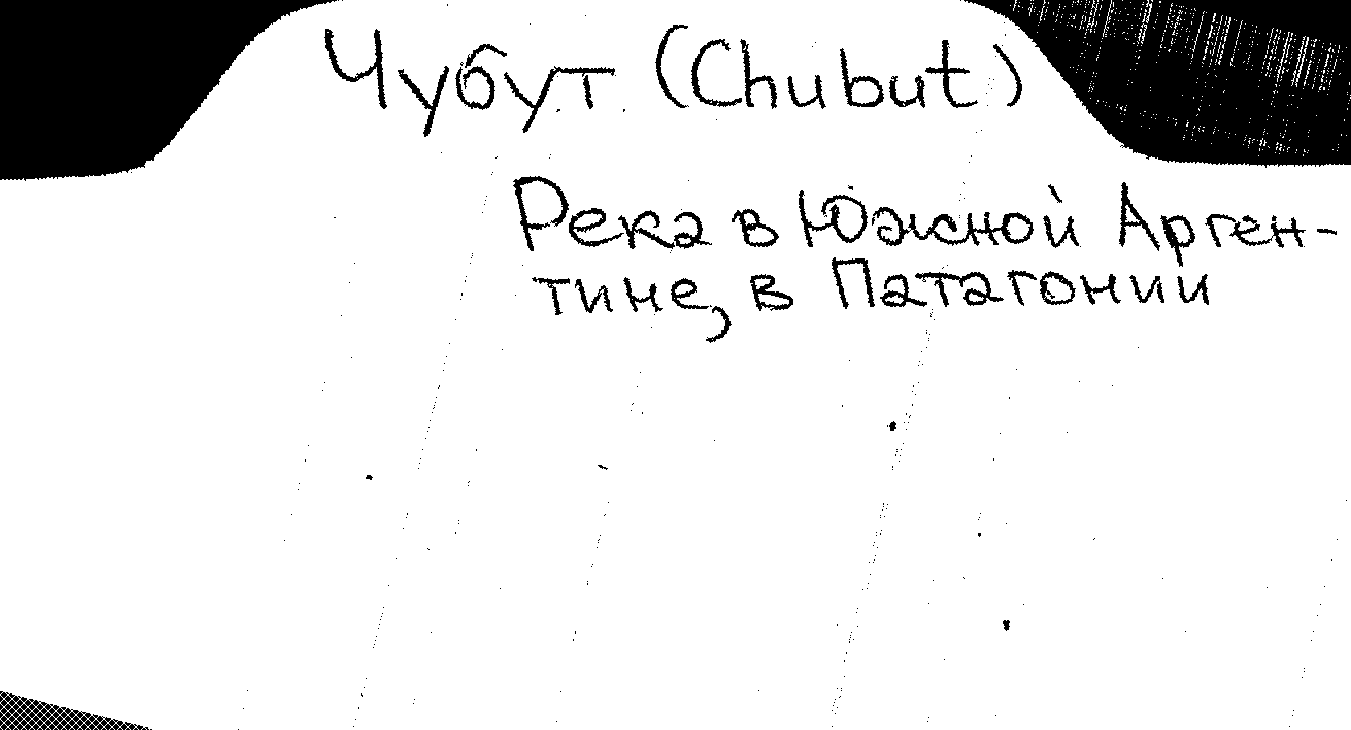 Чубут (Chubut)
Река в Южной Арген-
тине, в Патагонии